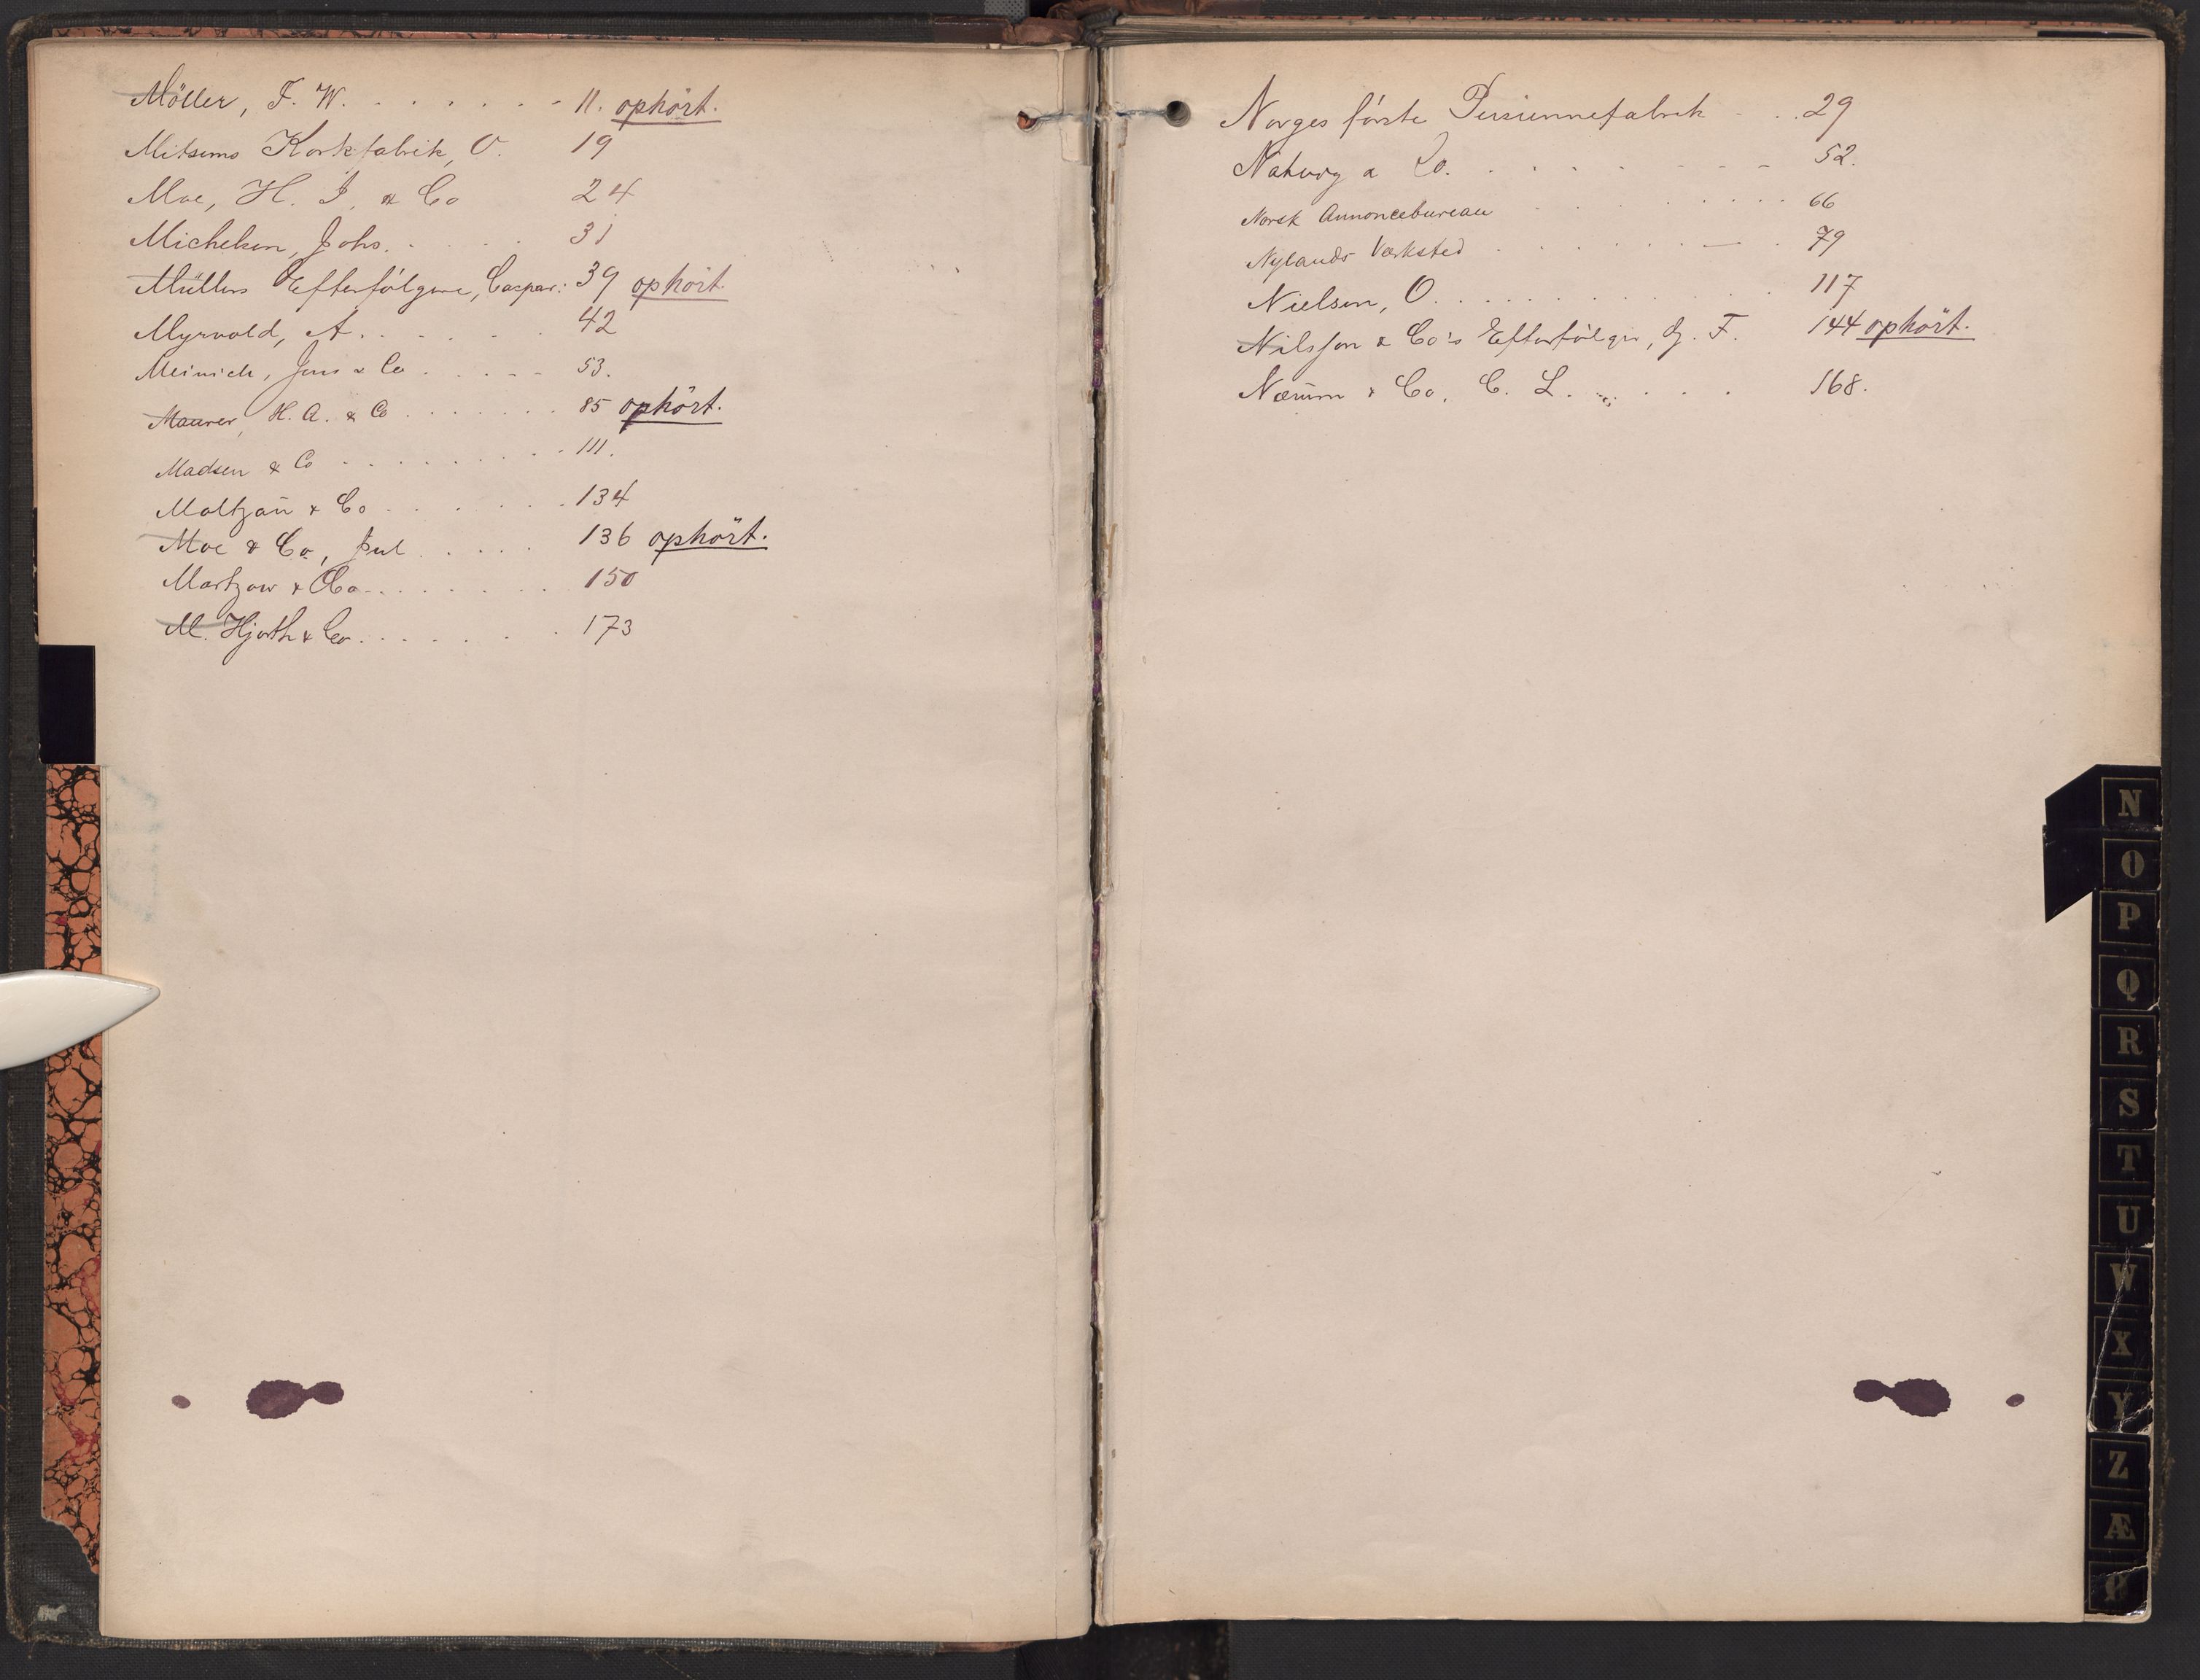 Möller, F. W. . . . . . . . 11. ophört.
Mitsems Korkfabrik, O. 19
Moe, H. J. & Co 24
Michelsen, Johs. . . . . 31
Müllers Efterfølgere, Caspar: 39 ophört.
Myrvold, A. . . . . . 42
Meinich, Jens & Co . . . . . 53.
Maurer, H. A. & Co . . . . . . . 85 ophört.
Madsen & Co . . . . . . . . . 111.
Maltzau & Co . . . . . . . 134
Moe & Co, Jul . . . . . 136 ophört.
Martzow & Co . . . . . . . 150
M. Hjorth & Co . . . . . . . 173
Norges første Persiennefabrik . . . 29
Natvig & Co. . . . . . . . . 52.
Norsk Annoncebureau . . . . . . . . . 66
Nylands Værksted . . . . . . . . 79
Nielsen, O. . . . . . . . . . . . . 117
Nilsson & Co's Efterfølger, G. F. 144 ophört.
Nærum & Co, C. L. . . . . . . 168.
N
O
P
Q
R
S
T
U
W
X
Y
Z
Æ
Ø